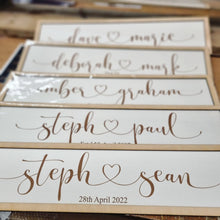 dave ♡ marie
deborah ♡ mark
mber ♡ graham
steph ♡ paul
steph ♡ sean
28th April 2022